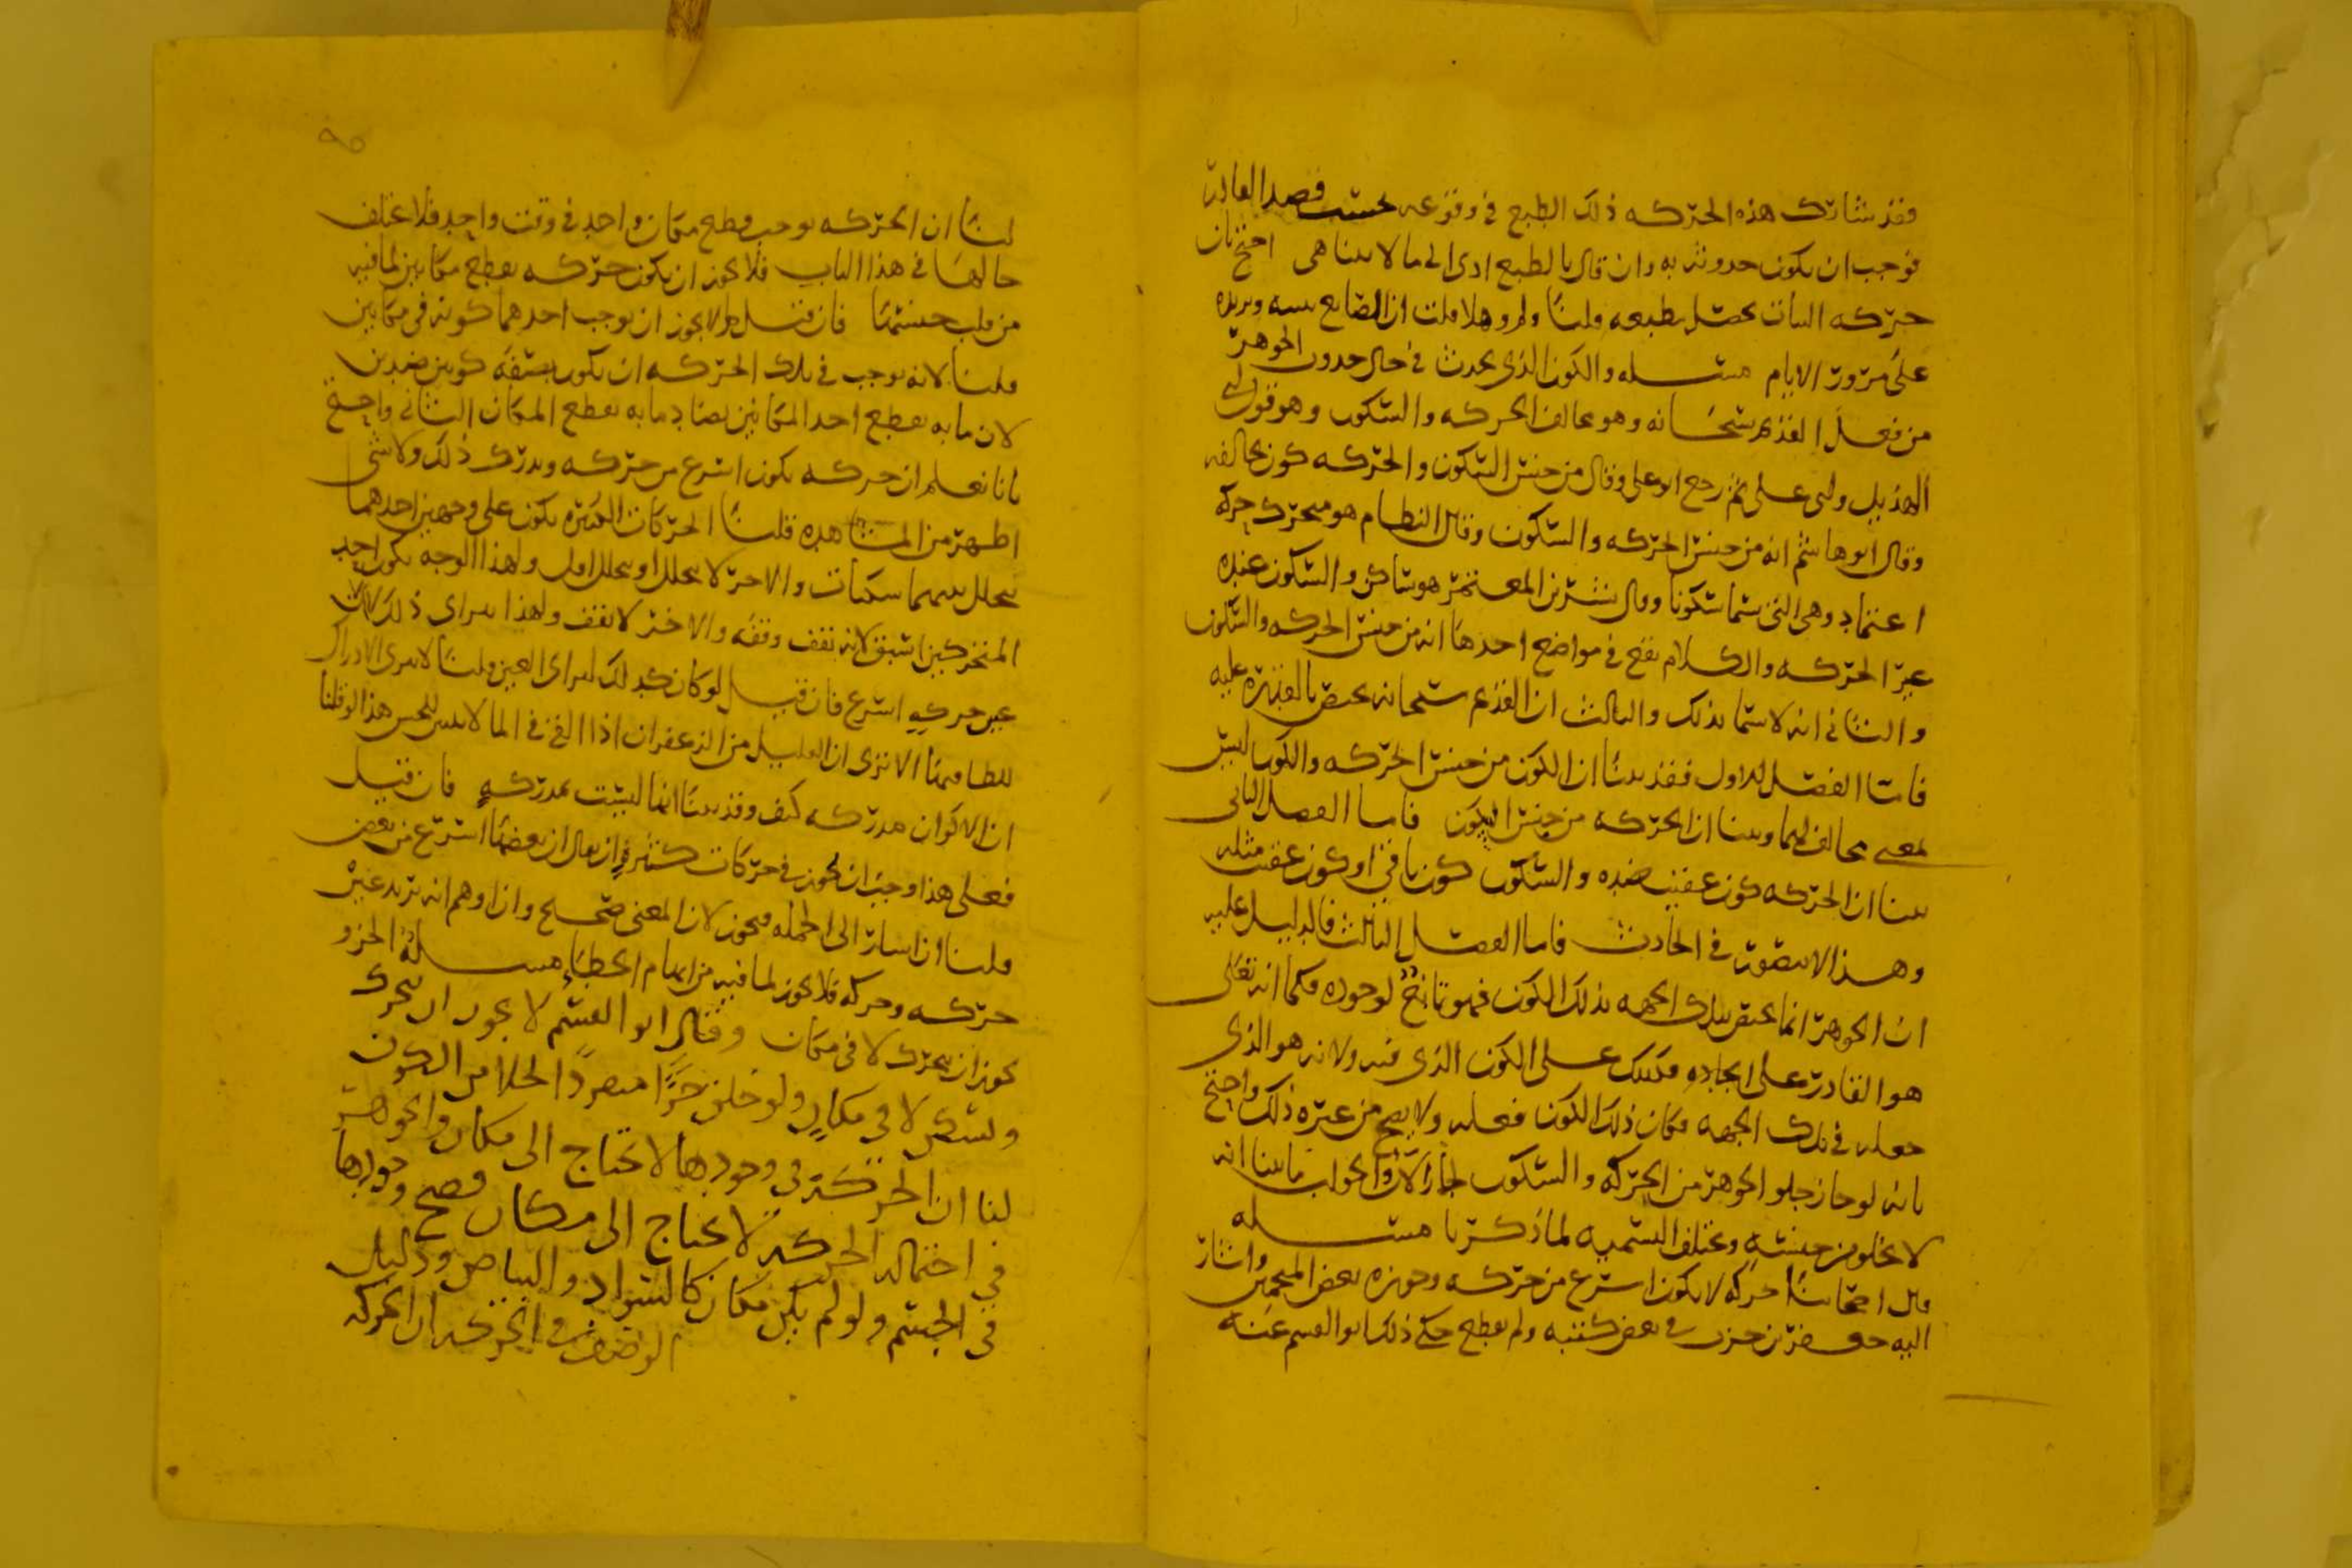 فقد شارك هذه الحركه ذلك الطبع في وقوعه بحسب قصد القادر
فوجب ان يكون حدوثه به وان قال بالطبع ادى الى ما لا يتناهى احتج بان
حركه النبات تحصل بطبعه قلنا ولم وهلا قلت ان الصانع ينبته ويزيده
على مرور الايام مسله والكون الذي يحدث في حال حدوث الجوهر
من فعل القديم سبحانه وهو مخالف الحركه والسكون وهو قول ابي
الهذيل وابي على ثم رجع ابو على وقال من جنس السكون والحركه كون يخالفه
وقال ابو هاشم انه من جنس الحركه والسكون وقال النظام هو متحرك حركة
اعتماد وهي التي سما سكونا وقال بشر بن المعتمر هو ساكن والسكون عنده
غير الحركه والكلام يقع في مواضع احدها انه من جنس الحركه والسكون
والثاني انه لا يسما بذلك والثالث ان القديم سبحانه يختص بالقدره عليه
فاما الفصل الاول فقد بينا ان الكون من جنس الحركه والكون ليس
لمعنى مخالف لهما وبينا ان الحركه من جنس السكون فاما الفصل الثاني
بينا ان الحركه كون عقيب ضده والسكون كون باقي او كون عقيب مثله
وهذا لا يتصور في الحادث فاما الفصل الثالث فالدليل عليه
ان الجوهر انما يختص بتلك الجهه بذلك الكون فهو تابع لوجوده فكما انه تعالى
هو القادر على ايجاده فكذلك على الكون الذي فيه ولانه هو الذي
جعله في تلك الجهه فكان ذلك الكون فعله ولا يصح من غيره ذلك واحتج
بانه لو جاز خلو الجوهر من الحركه والسكون لجاز الان والجواب ما بينا انه
لا يخلو من جنسه وتختلف التسميه لما ذكرنا مسله
قال اصحابنا حركه لا يكون اسرع من حركه وجوزه بعض المنجمين واشار
اليه جعفر بن حرب في بعض كتبه ولم يقطع حكى ذلك ابو القسم عنه
٩٥
لنا ان الحركه توجب قطع مكان واحد في وقت واحد فلا يختلف
حالها في هذا الباب فلا يجوز ان يكون حركه يقطع مكانين لما فيه
من قلب جنسها فان قيل هلا يجوز ان توجب احدهما كونه في مكانين
قلنا لانه يوجب في تلك الحركه ان يكون بصفة كونين ضدين
لان ما به يقطع احد المكانين يضاد ما به يقطع المكان الثاني واحتج
بانا نعلم ان حركه يكون اسرع من حركه ويدرك ذلك ولا شى
اظهر من المشاهده قلنا الحركات الكثيره يكون على وجهين احدهما
يتخلل بينهما سكنات والاخر لا يتخلل او يتخلل اول ولهذا الوجه يكون احد
المتحركين اسبق لانه يقف وقفه والاخر لا يقف ولهذا يتراى ذلك لان
عين حركه اسرع فان قيل لو كان كذلك لتراى للعين قلنا لا يترى الادراك
للطافتها الا ترى ان القليل من الزعفران اذا القي في الما لا يتبين للحس هذا لو قلنا
ان الاكوان مدركه كيف وقد بينا انها ليست بمدركه فان قيل
فعلى هذا وجب ان يجوز في حركات كثيره ان يقال ان بعضها اسرع من بعض
قلنا ان اشار الى الجمله فيجوز لان المعنى صحيح وان اوهم انه يريد عين
حركه وحركه فلا يجوز لما فيه من ايهام الخطا مسله الجزو
يجوز ان يتحرك لا في مكان وقال ابو القسم لا يجوز ان يتحرك
ويسكن لا في مكان ولو خلق جزًا منفردًا لخلا من الكون
لنا ان الحركة في وجودها لا تحتاج الى مكان والجوهر
في احتماله الحركه لا يحتاج الى مكان فصح وجودها
في الجسم ولو لم يكن مكان كالسواد والبياض ودليل
الوصف في الحركه ان الحركه